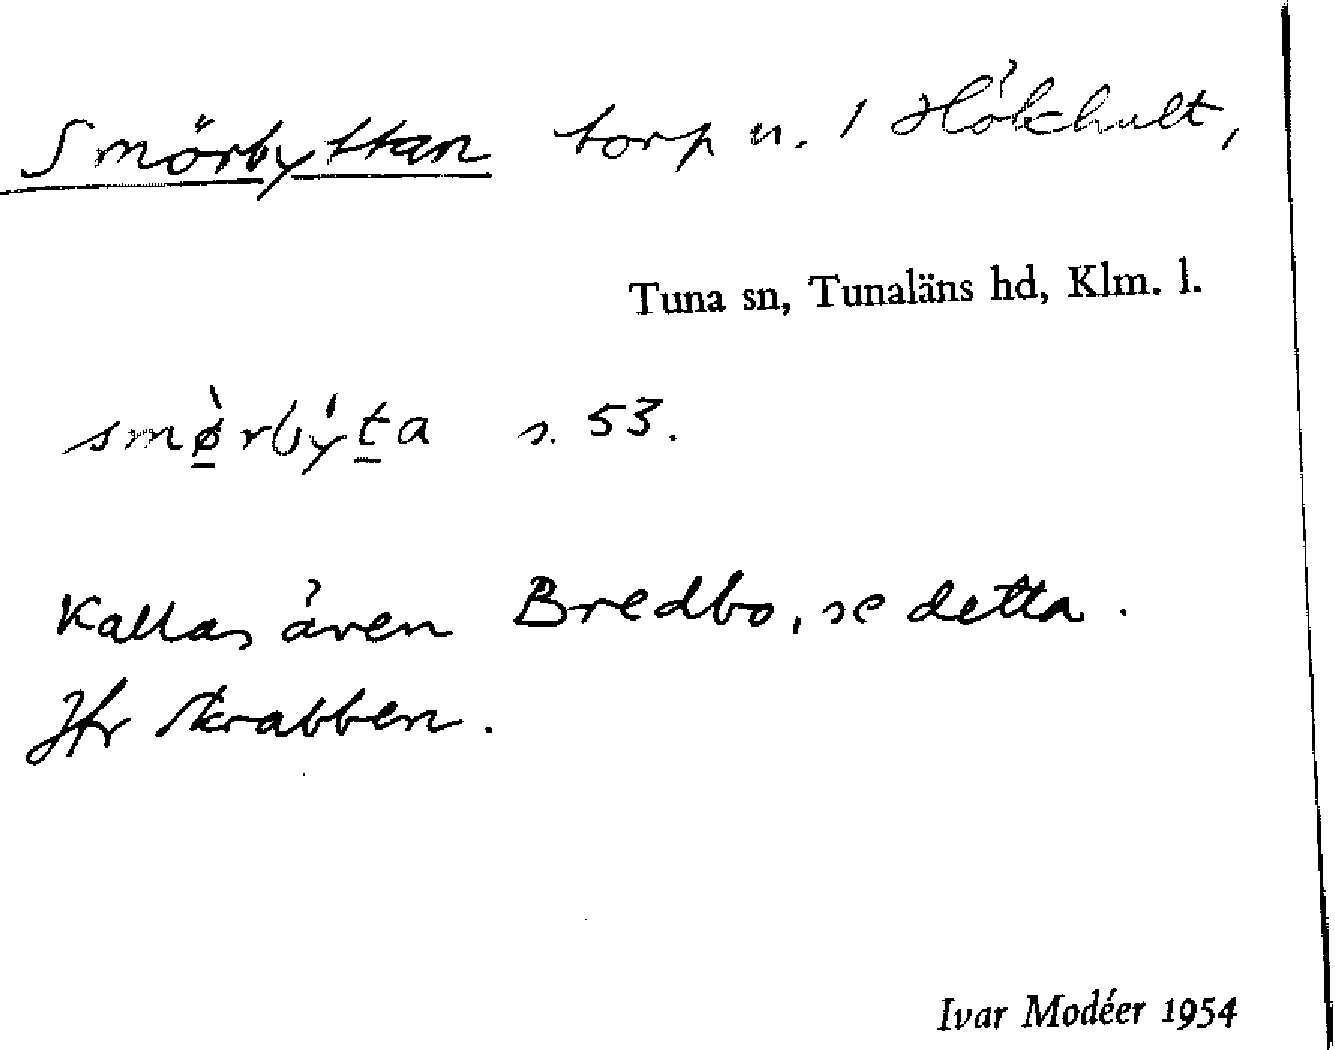 Smörbyttan torp u. 1 Hökhult,
Tuna sn, Tunaläns hd, Klm. l.
smø̲̀rbýt̲a s. 53.
Kallas även Bredbo, se detta.
Jfr Skrabben.
Ivar Modéer 1954